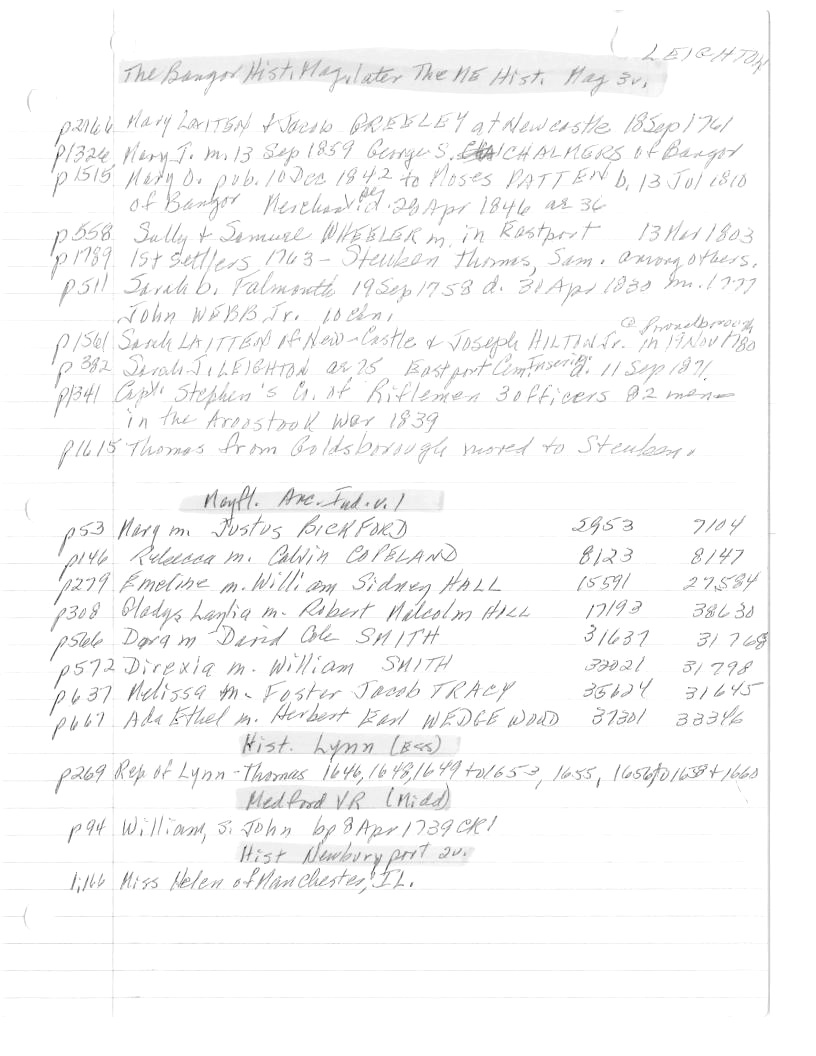 LEIGHTON
The Bangor Hist. Mag. later The ME Hist. Mag 3v.
p2166 Mary LAITEN & Jacob GREELEY at Newcastle 18 Sep 1761
p1326 Mary J. m. 13 Sep 1859 George S. CHALMERS of Bangor
p1515 Mary O. pub. 10 Dec 1842 to Moses PATTEN b. 13 Jul 1810
of Bangor Merchant d. 28 Apr 1846 ae 36
p558 Sally & Samuel WHEELER m. in Eastport 13 Mar 1803
p1789 1st settlers 1763 - Steuben Thomas, Sam. among others.
p511 Sarah b. Falmouth 19 Sep 1758 d. 30 Apr 1830 m. 1777
John WEBB Jr. 10 chn.
p1561 Sarah LAITTEN of New-Castle & Joseph HILTON Jr. in 19 Nov 1780
p382 Sarah J. LEIGHTON ae 25 Eastport Cem Inscrip. d. 11 Sep 1871
p1341 Capt. Stephen's Co. of Riflemen 3 officers 82 men
in the Aroostook War 1839
p1615 Thomas from Goldsborough moved to Steuben.
Mayfl. Anc. Ind. v. 1
p53 Mary m. Justus BICKFORD 2953 7104
p146 Rebecca m. Calvin COPELAND 8123 8147
p279 Emeline m. William Sidney HALL 15591 27584
p308 Gladys m. Robert Malcolm HILL 17193 38630
p566 Dora m David Cole SMITH 31637 31768
p572 Direxia m. William SMITH 32021 31798
p637 Melissa m. Foster Jacob TRACY 35624 31645
p667 Ada Ethel m. Herbert Earl WEDGEWOOD 37301 33346
Hist. Lynn (Ess)
p269 Rep of Lynn - Thomas 1646, 1648, 1649 to 1653, 1655, 1656 to 1658 + 1660
Medford VR (Midd)
p94 William, s. John bp 8 Apr 1739 CR1
Hist Newburyport 2v.
1;166 Miss Helen of Manchester, IL.